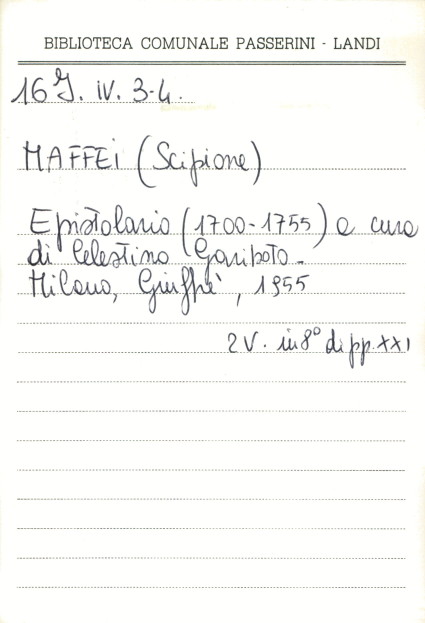 BIBLIOTECA COMUNALE PASSERINI - LANDI
16 J. IV. 3-4.
MAFFEI (Scipione)
Epistolario (1700-1755) a cura
di Celestino Gariboto -
Milano, Giuffrè, 1955
2 V. in 8° di pp. XXI